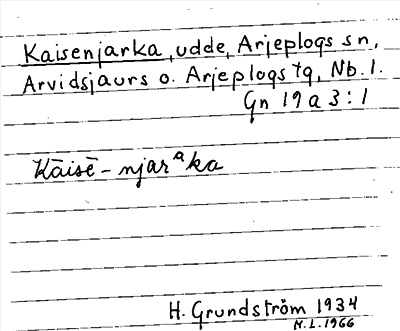 Kaisenjarka, udde, Arjeplogs sn,
Arvidsjaurs o. Arjeplogs tg, Nb. l.
Gn 19 a 3:1
Kāisē-njarᵃka
H. Grundström 1934
H.L. 1966